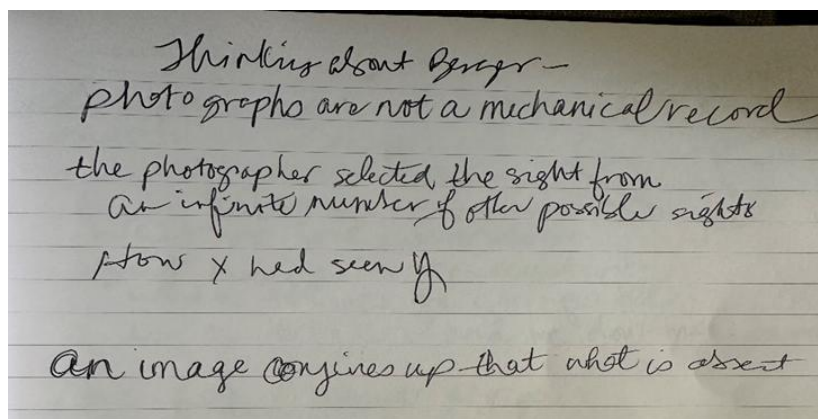 Thinking about Berger –
photographs are not a mechanical record
the photographer selected the sight from
an infinite number of other possible sights
How X had seen Y
an image conjures up that what is absent